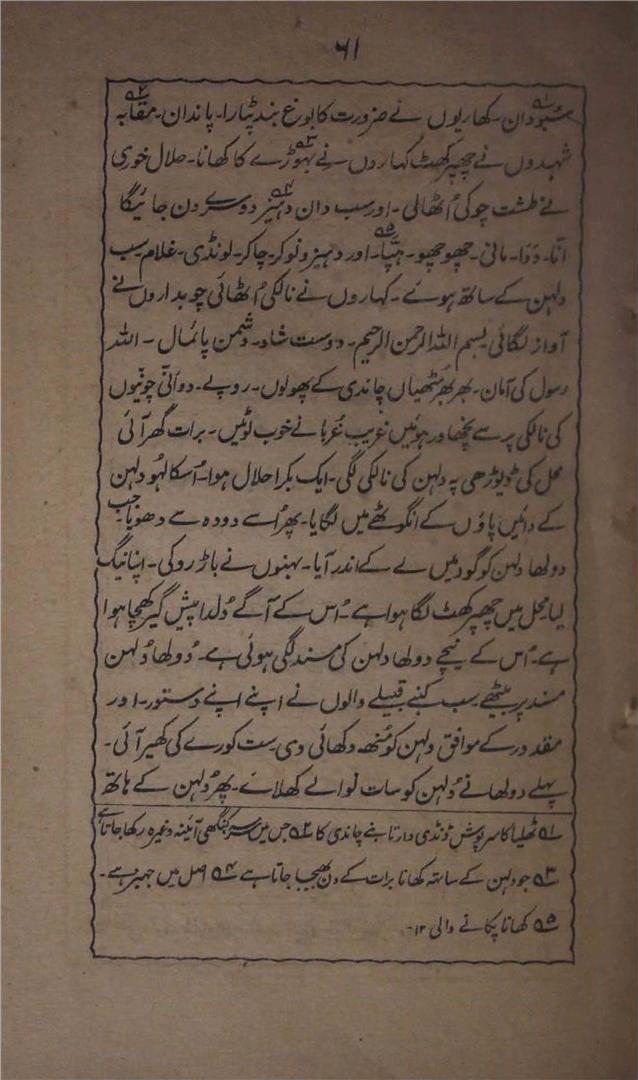 ۶۱
سُبودان۔ کھاریوں نے ضرورت کا بوغ بند پٹارا۔ پاندان۔ مقابہ
شہدوں نے چھپر کھٹ کہاروں نے بہوڑے کا کھانا۔ حلال خوری
نے طشت چوکی اُٹھالی۔ اور سب دان دہیز دوسرے دن جائیگا
انّا۔ دَدا۔ مانی۔ چھوچھو۔ چپّا۔ اور دہیز و نوکر۔ چاکر۔ لونڈی۔ غلام سب
دلہن کے ساتھ ہوئے۔ کہاروں نے نالکی اُٹھائی چوبداروں نے
آواز لگائی بسم اللہ الرحمن الرحیم۔ دوست شاد۔ دشمن پائمال۔ اللہ
رسول کی آمان۔ بھر بھر مٹھیاں چاندی کے پھولوں۔ روپے۔ دوانّی چونّیوں
کی نالکی پر سے نچھاور ہوئیں غریب غُربا نے خوب لوٹیں۔ برات گھر آئی
محل کی ڈیوڑھی پہ دلہن کی نالکی لگی۔ ایک بکرا حلال ہوا۔ اُسکا لہو دلہن
کے دائیں پاؤں کے انگوٹھے میں لگایا۔ پھر اُسے دودہ سے دھویا۔ جب
دولھا دلہن کو گود میں لے کے اندر آیا۔ بہنوں نے باڑ روکی۔ اپنا نیگ
لیا محل میں چھپر کھٹ لگا ہوا ہے۔ اُس کے آگے دُلدا پیش گیر کھچا ہوا
ہے۔ اُس کے نیچے دولھا دلہن کی مسند لگی ہوئی ہے۔ دُولھا دُلہن
مسند پر بیٹھے سب کنبے قبیلے والوں نے اپنے اپنے دستور۔ اور
مقدور کے موافق دلہن کو مُنھ دکھائی دی ست کورے کی کھیر آئی۔
پہلے دولھا نے دُلہن کو سات نوالے کھلائے۔ پھر دُلہن کے ہاتھ
۵۱ ٹھلیا کا سرپوش ڈنڈی دار تانبے چاندی کا ۵۲ جس میں سرمہ کنگھی آئینہ وغیرہ رکھا جاتا ہے
۵۳ جو دلہن کے ساتھ کھانا برات کے دن بھیجا جاتا ہے ۵۴ اصل میں جہیز ہے۔
۵۵ کھانا پکانے والی ۱۲۔